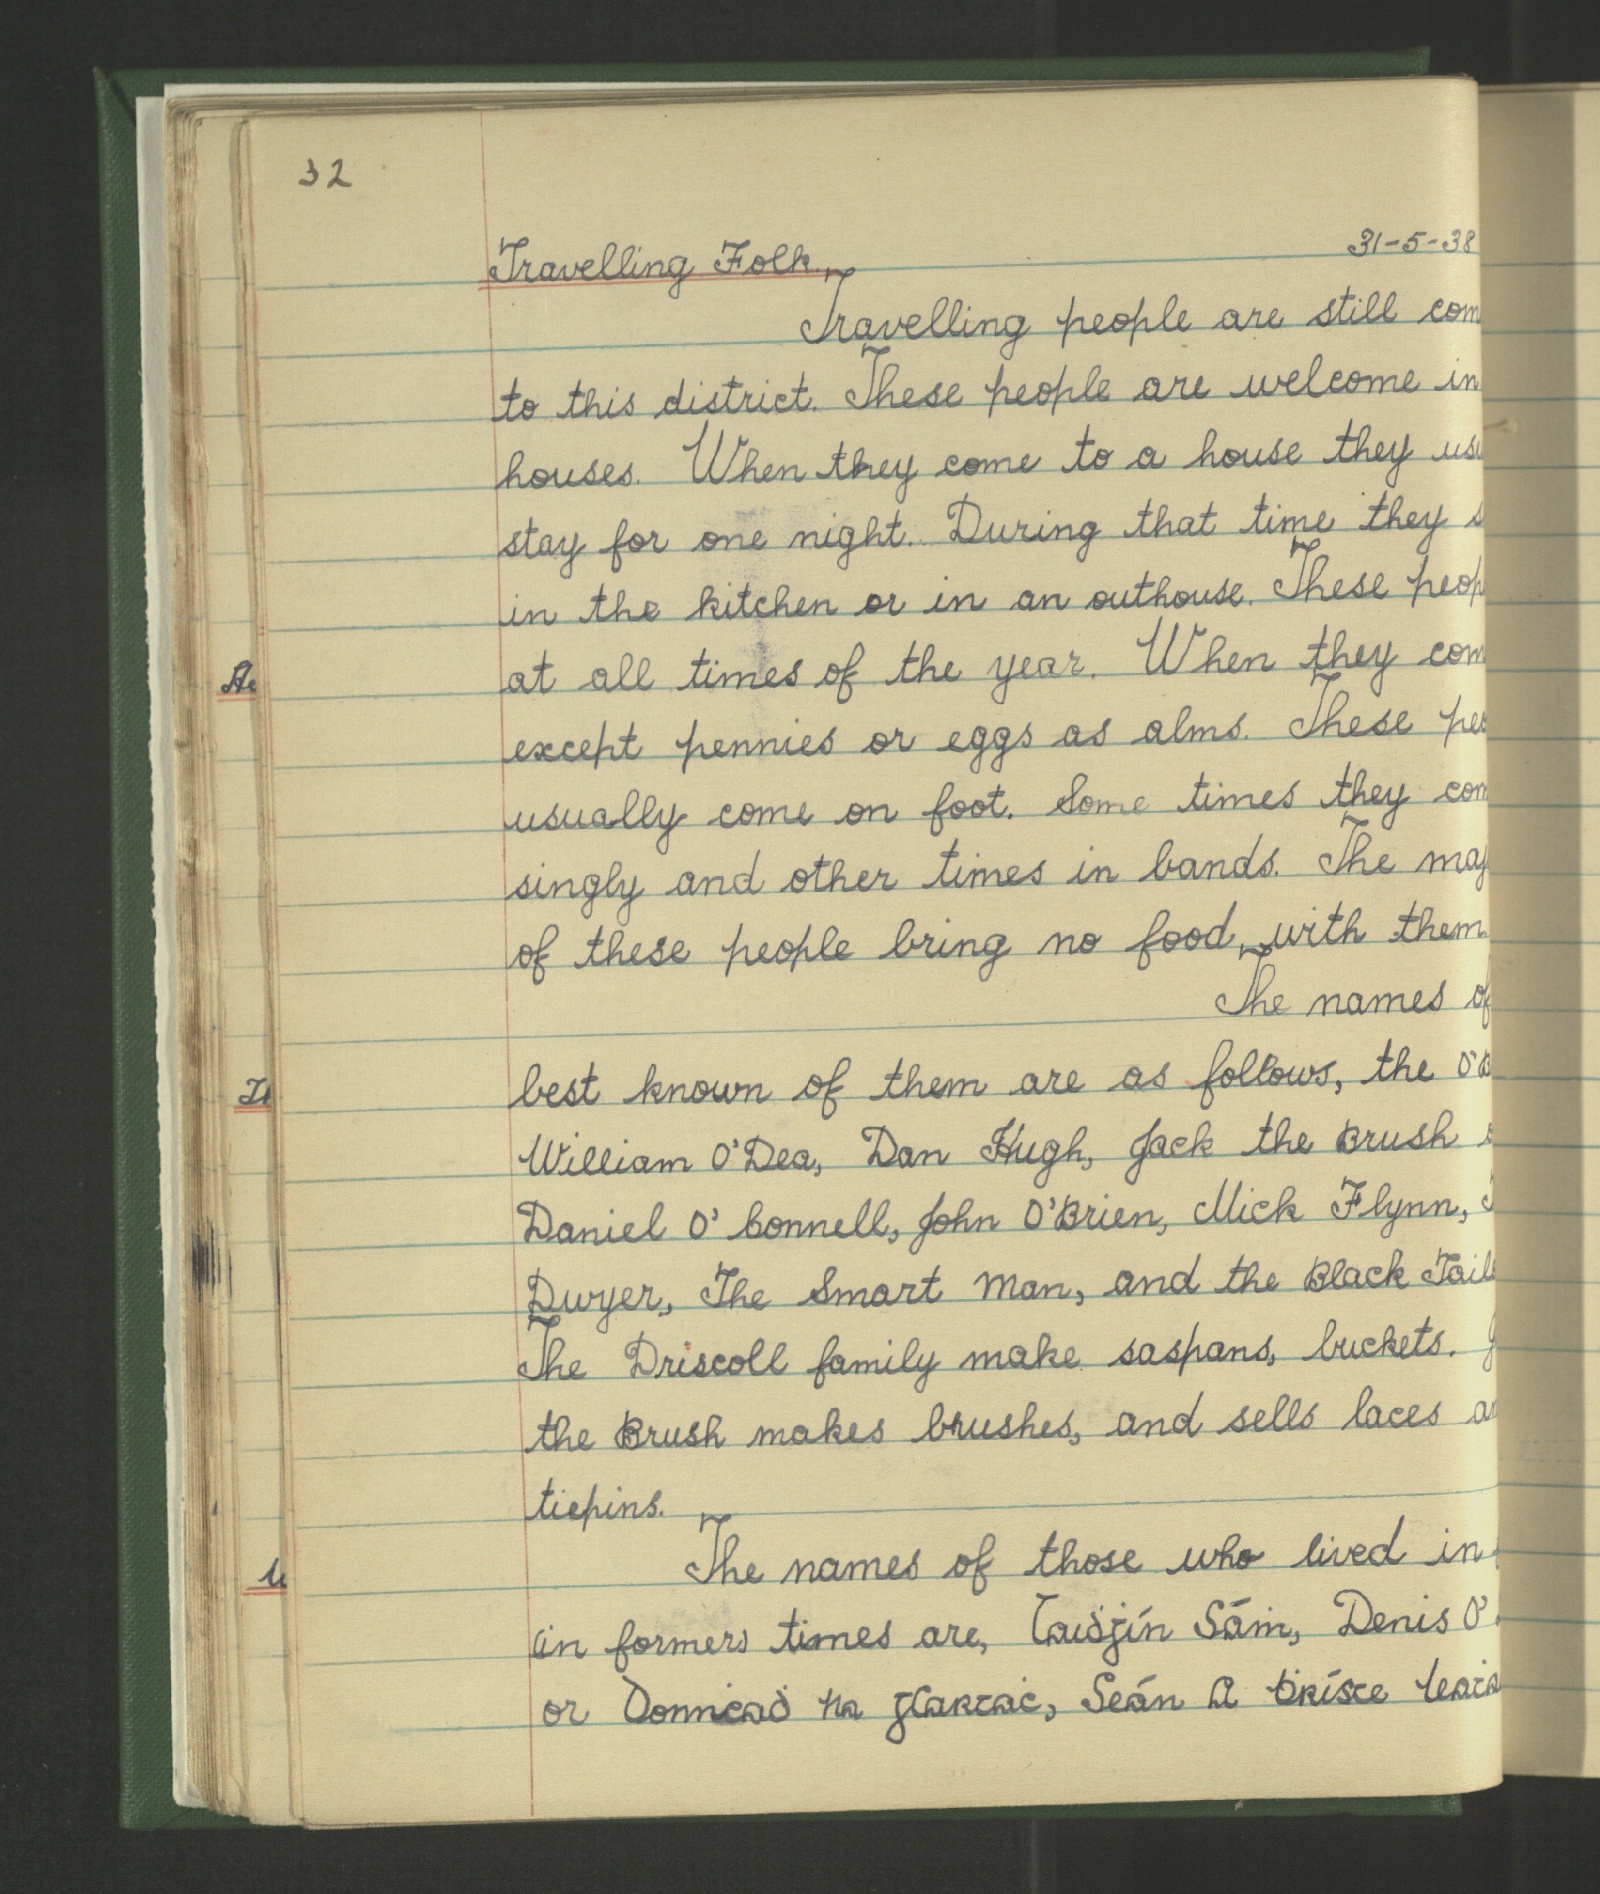 32
31-5-38
Travelling Folk.
Travelling people are still com
to this district. These people are welcome in
houses. When they come to a house they usu
stay for one night. During that time they s
in the kitchen or in an outhouse. These peop
at all times of the year. When they com
except pennies or eggs as alms. These peo
usually come on foot. Some times they com
singly and other times in bands. The maj
of these people bring no food, with them.
The names of
best known of them are as follows, the O'B
William O'Dea, Dan Hugh, Jack the Brush
Daniel O' Connell, John O'Brien, Mick Flynn,
Dwyer, The Smart Man, and the Black Tail
The Driscoll family make saspans, buckets. J
the Brush makes brushes, and sells laces an
tiepins.
The names of those who lived in
in formers times are, Taiḋgín Sáiṁ, Denis O'
or Donnċaḋ na gCartaċ, Seán a Ḃríste